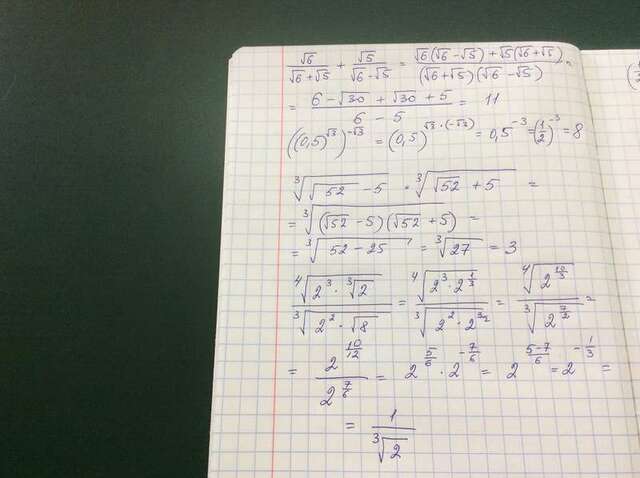 √6/(√6+√5) + √5/(√6-√5) = (√6(√6-√5)+√5(√6+√5))/((√6+√5)(√6-√5)) =
= (6-√30+√30+5)/(6-5) = 11
((0,5)^√3)^-√3 = (0,5)^√3·(-√3) = 0,5^-3 = (1/2)^-3 = 8
∛(√52-5) · ∛(√52+5) =
= ∛((√52-5)(√52+5)) =
= ∛(52-25) = ∛27 = 3
∜(2³·∛2)/∛(2²·√8) = ∜(2³·2^(1/3))/∛(2²·2^(3/2)) = ∜(2^(10/3))/∛(2^(7/2)) =
= 2^(10/12)/2^(7/6) = 2^(5/6)·2^(-7/6) = 2^((5-7)/6) = 2^(-1/3) =
= 1/∛2